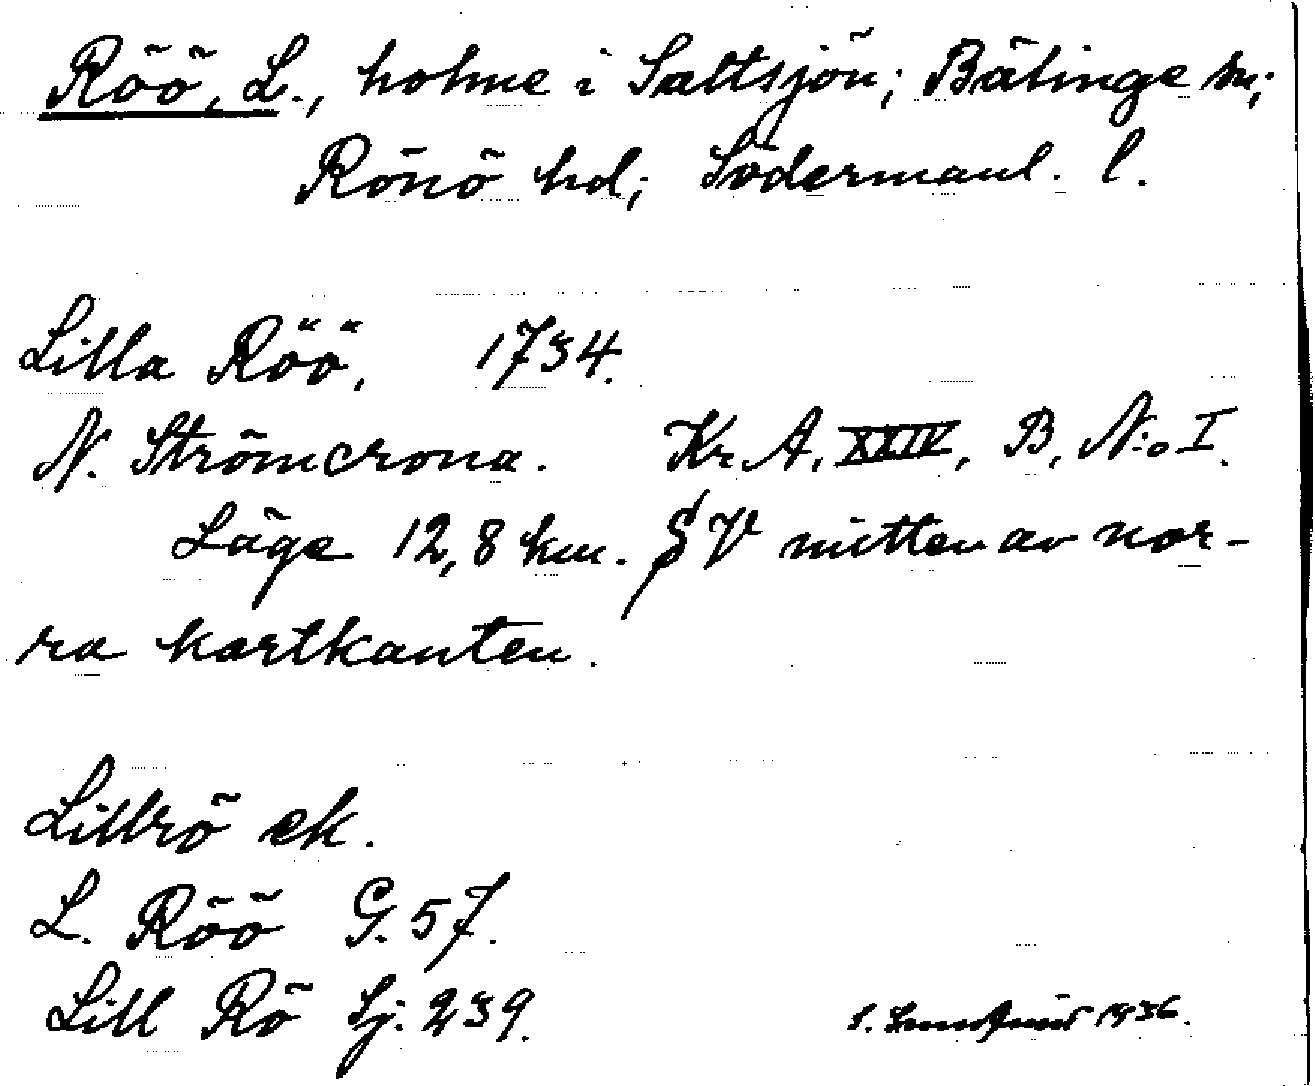 Röö, L., holme i Saltsjön; Bälinge sn;
Rönö hd; Södermanl. l.
Lilla Röö, 1734.
N. Strömcrona. Kr. A. XXIV, B, N:o I.
Läge 12,8 km. SV mitten av nor-
ra kartkanten.
Lillrö ek.
L. Röö G. 57.
Lill Rö Sj. 239.
1936.